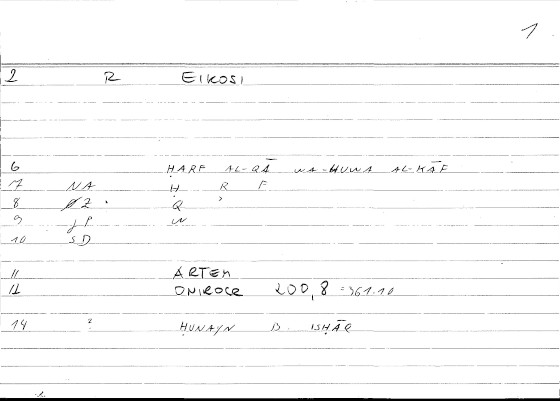 1
2 R EIKOSI
6 ḤARF AL-QĀ WA-HUWA AL-KĀF
7 NA Ḥ R F
8 Q ʾ
9 JP W
10 SD
11 ARTEM
12 ONIROCR 200,8 =361.10
14 ? ḤUNAYN B. ISḤĀQ